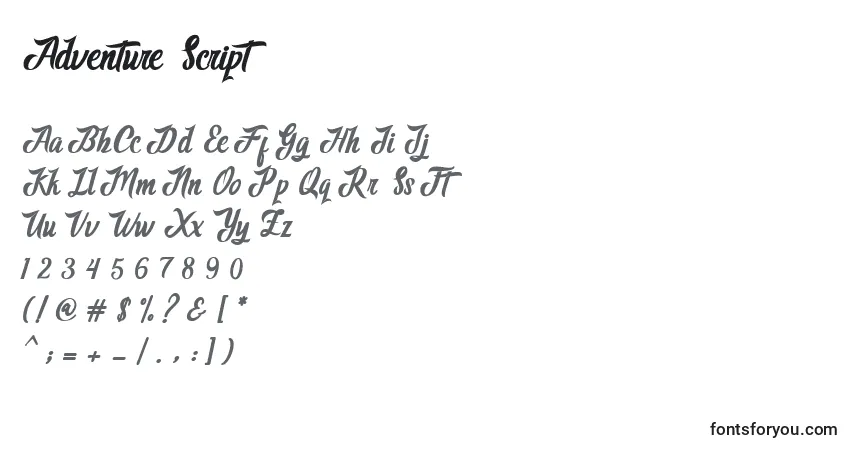 Adventure Script
Aa Bb Cc Dd Ee Ff Gg Hh Ii Jj
Kk Ll Mm Nn Oo Pp Qq Rr Ss Tt
Uu Vv Ww Xx Yy Zz
1 2 3 4 5 6 7 8 9 0
( ! @ # $ % ? & [ *
^ ; = + _ / . , : ] )
fontsforyou.com